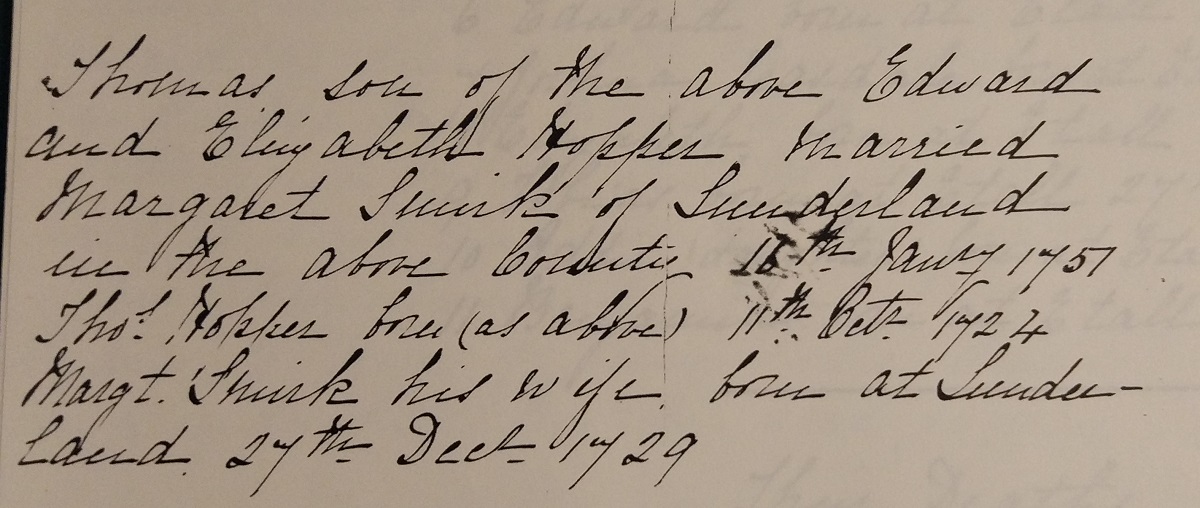 Thomas son of the above Edward
and Elizabeth Hopper, Married
Margaret Smirk of Sunderland
in the above County 16th Jany 1751
Thos. Hopper born (as above) 11th Octr 1724
Margt. Smirk his wife, born at Sunder-
land 27th Decr 1729